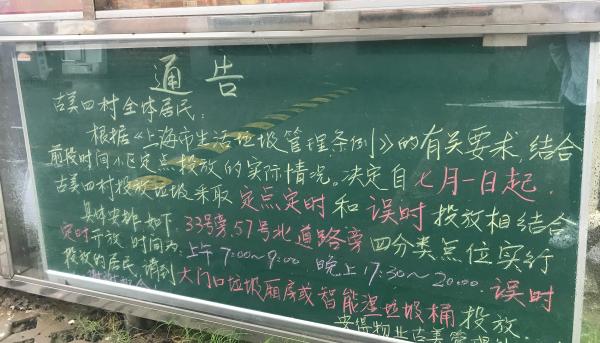 通告
古美四村全体居民：
根据《上海市生活垃圾管理条例》的有关要求，结合
前段时间小区定点投放的实际情况。决定自七月一日起，
古美四村投放垃圾采取定点定时和误时投放相结合
具体安排如下 33号旁、57号北道路旁四分类点位实行
定时开放 时间为：上午7:00～9:00 晚上17:30～20:00. 误时
投放的居民，请到大门口垃圾厢房或智能湿垃圾桶投放.
物业古美管理处